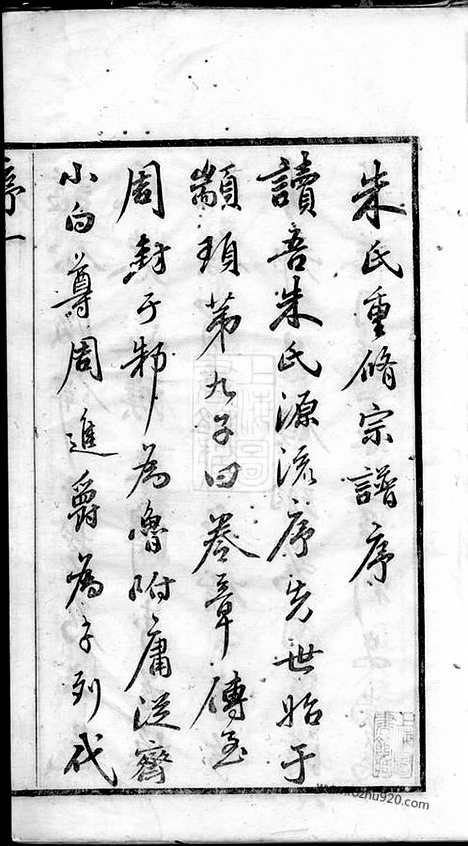 朱氏重脩宗譜序
讀吾朱氏源流序先世始于
顓頊第九子曰卷章傳至
周封于邾為魯附庸從齊
小白尊周進爵為子列代
序一